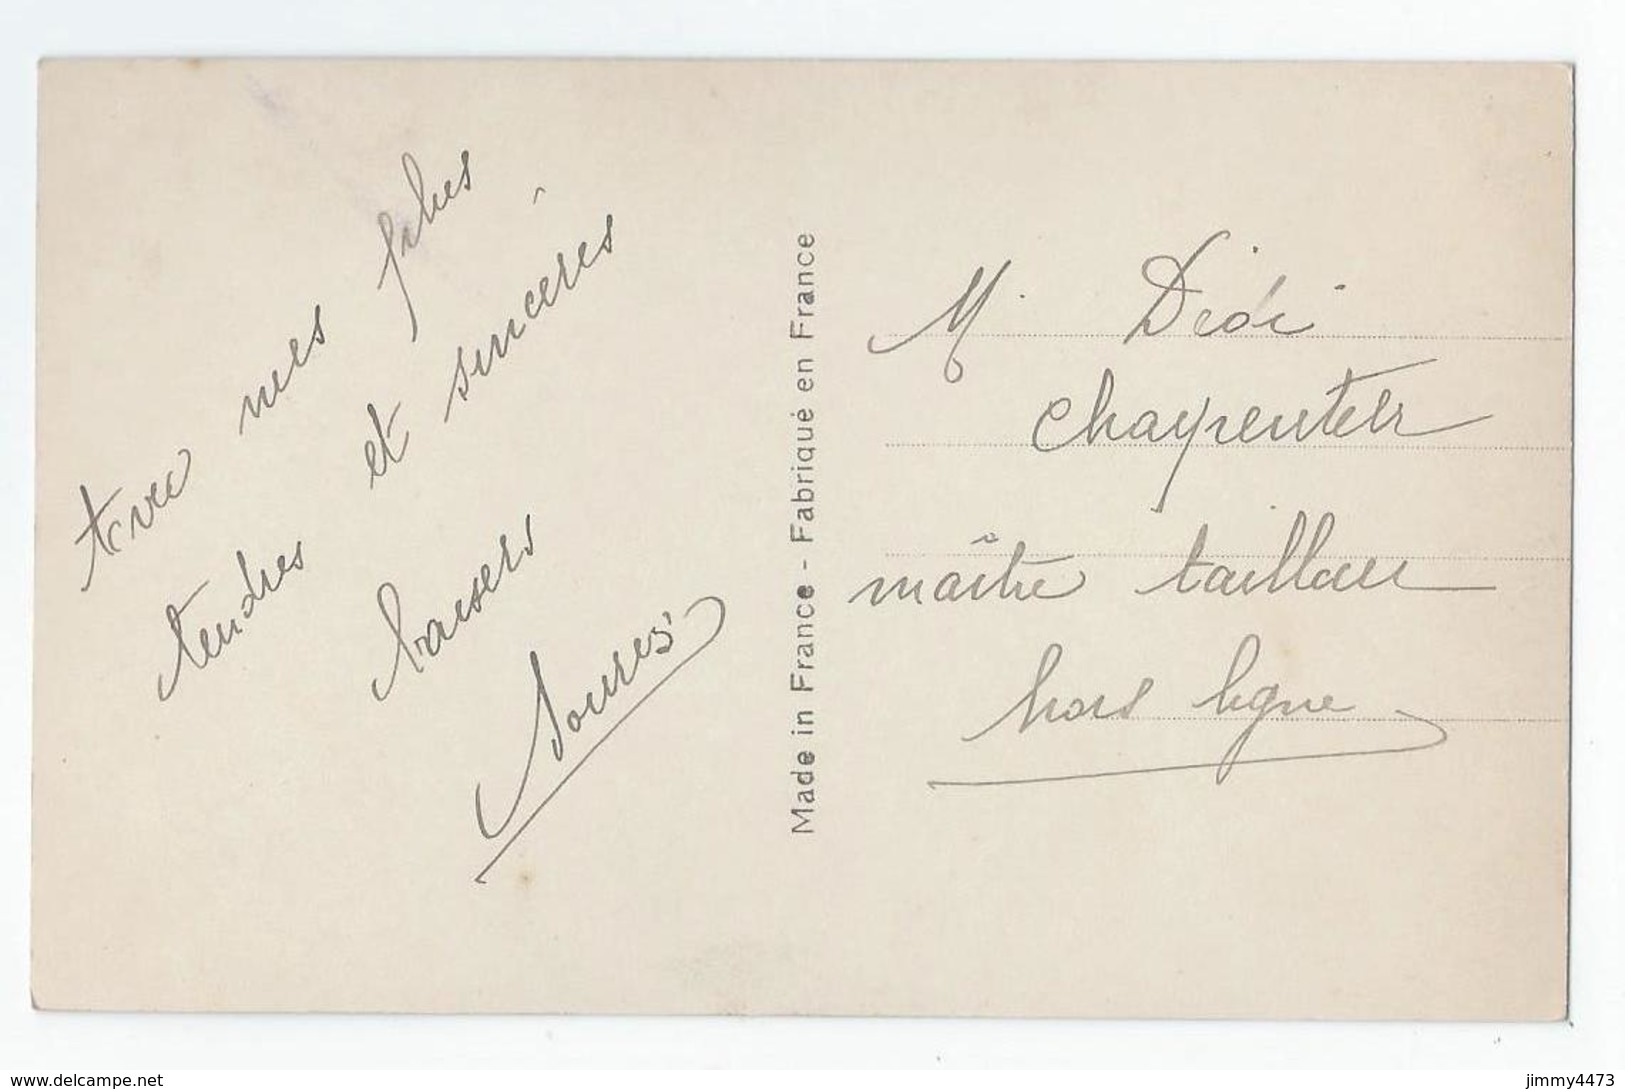 Avec mes plus
tendres et sincères
baisers
Made in France - Fabriqué en France
M. Dédé
Charpentier
maître tailleur
hors ligne
www.delcampe.net
jimmy4473